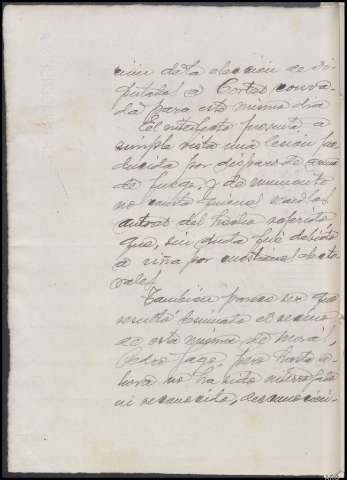 cion de la eleccion de di-
putados a Cortes convoca-
da para este mismo dia
El interfecto presenta a
simple vista una lesion pro-
ducida por disparo de arma
de fuego, y de momento
no consta quienes sean los
autores del hecho referido
que, sin duda fué debido
a riña por cuestiones electo-
rales
Tambien parece ser que
resultó lesionado el vecino
de esta misma
Pedro Jago pero hasta a-
hora no ha sido
ni reconocido, desconocien-